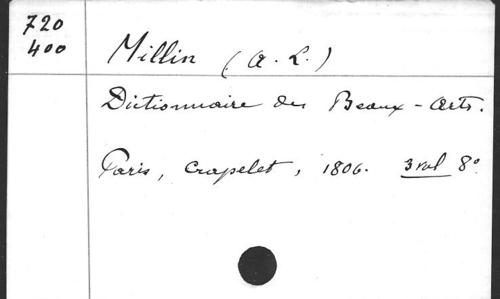 720
400
Millin (A. L.)
Dictionnaire des Beaux-Arts.
Paris, Crapelet, 1806. 3 vol 8°